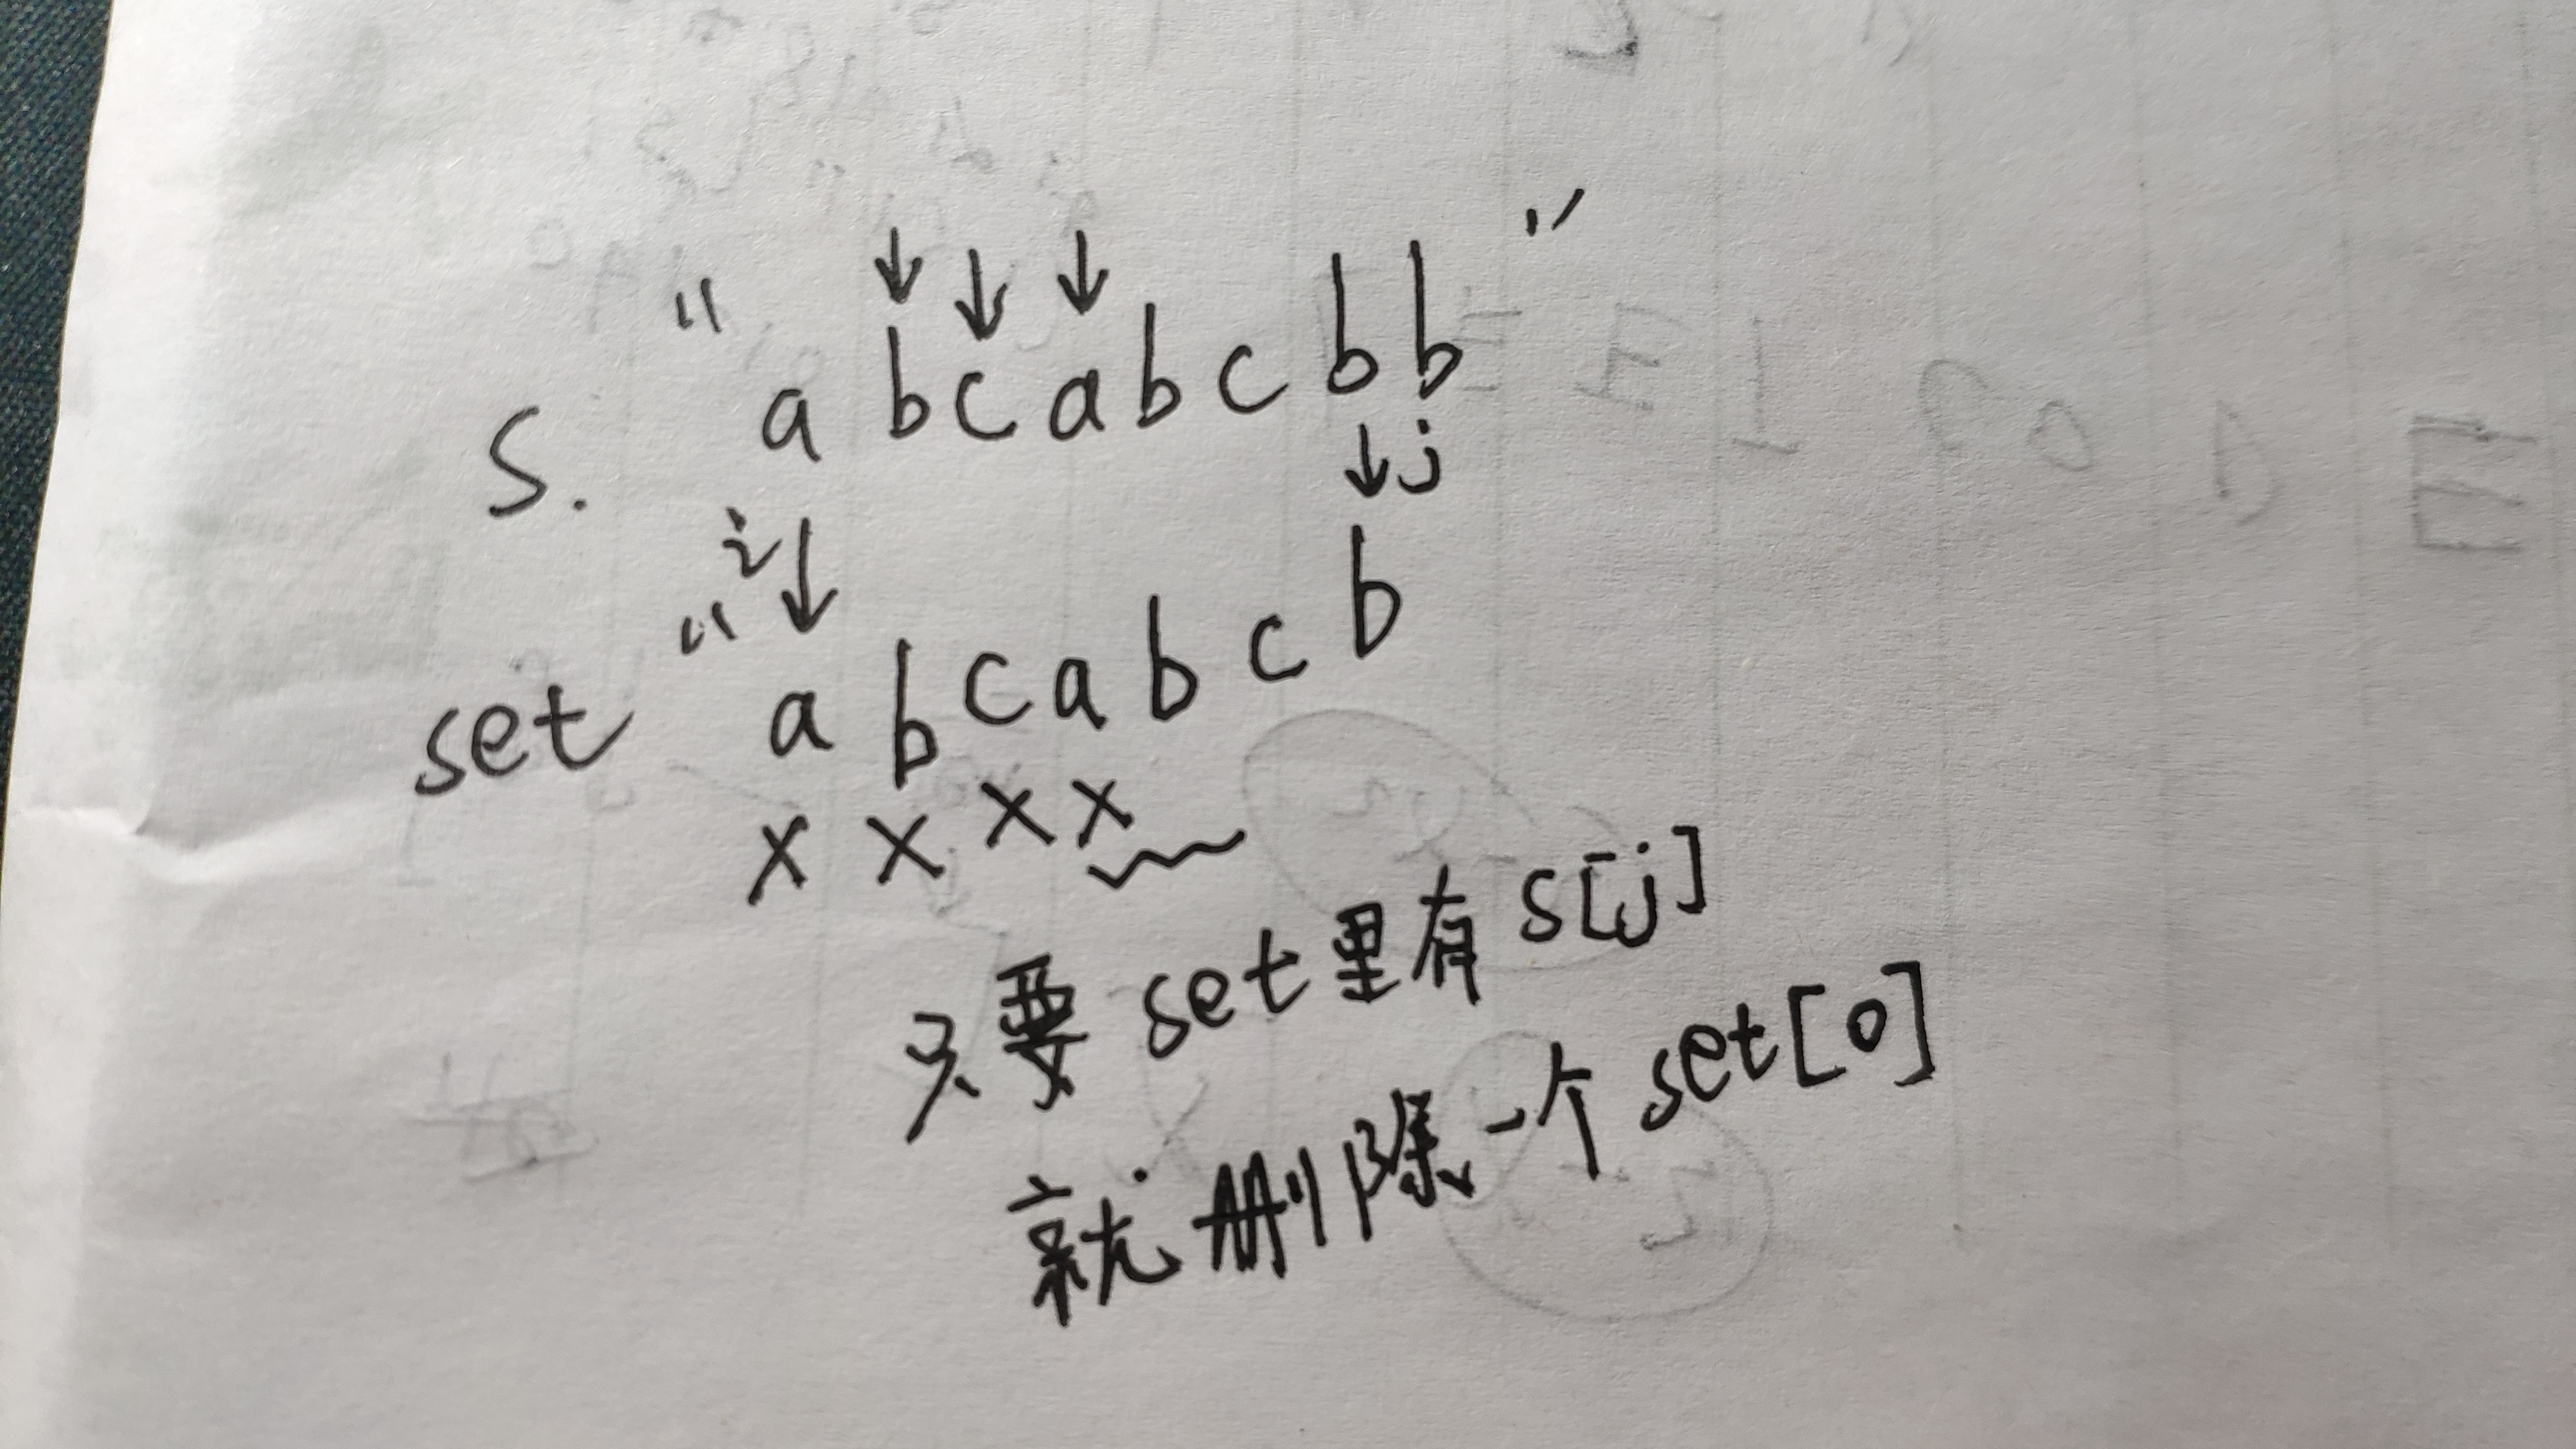 S. "abcabcbb"
j
i
set "abcabcb
xxxx
只要set里有s[j]
就删除一个set[0]